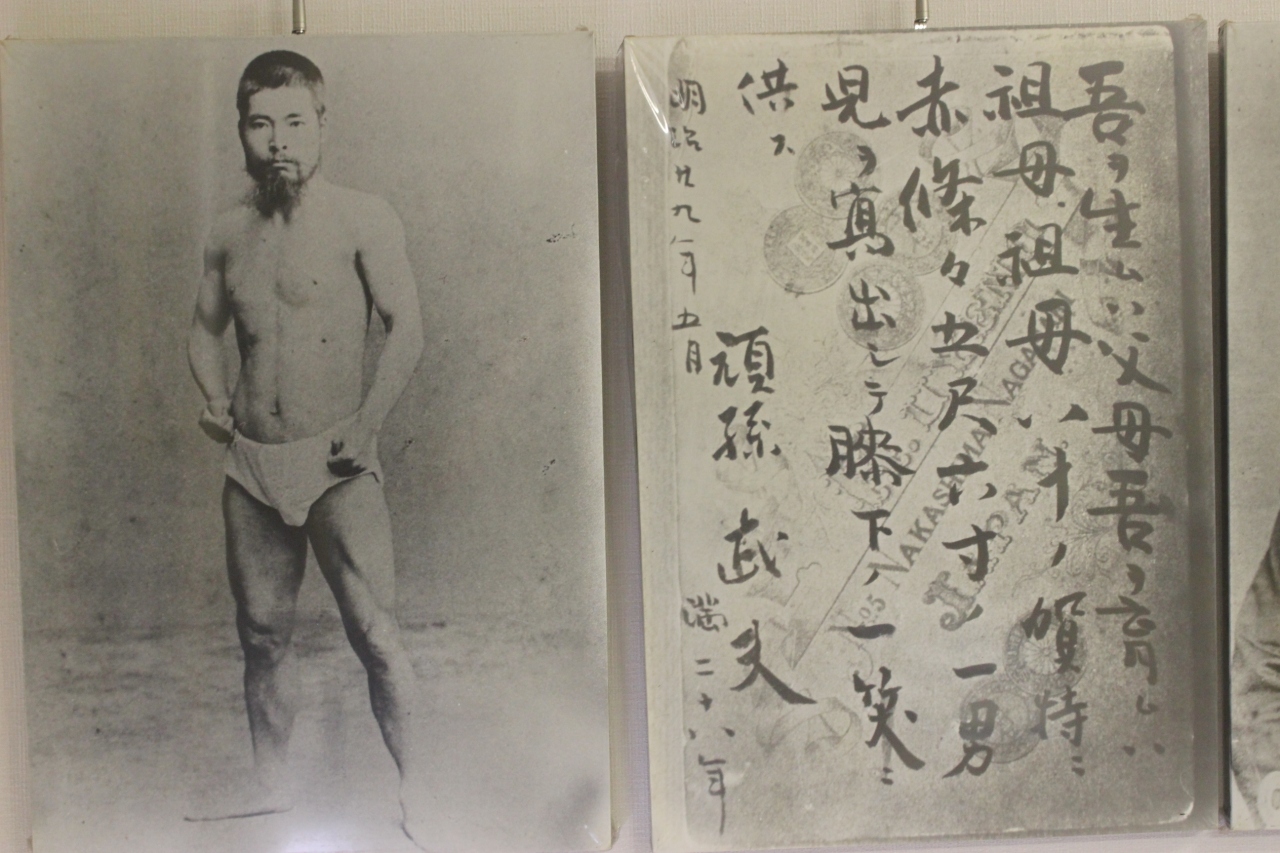 吾ヲ生ムハ父母吾ヲ育ムハ
祖母祖母八十ノ賀特ニ
赤條々五尺六寸ノ一男
児ヲ寫出シテ膝下ノ一笑ニ
供ス
頑孫 武夫
満二十八年
明治廿九年五月
NAKASHIMA NAGA